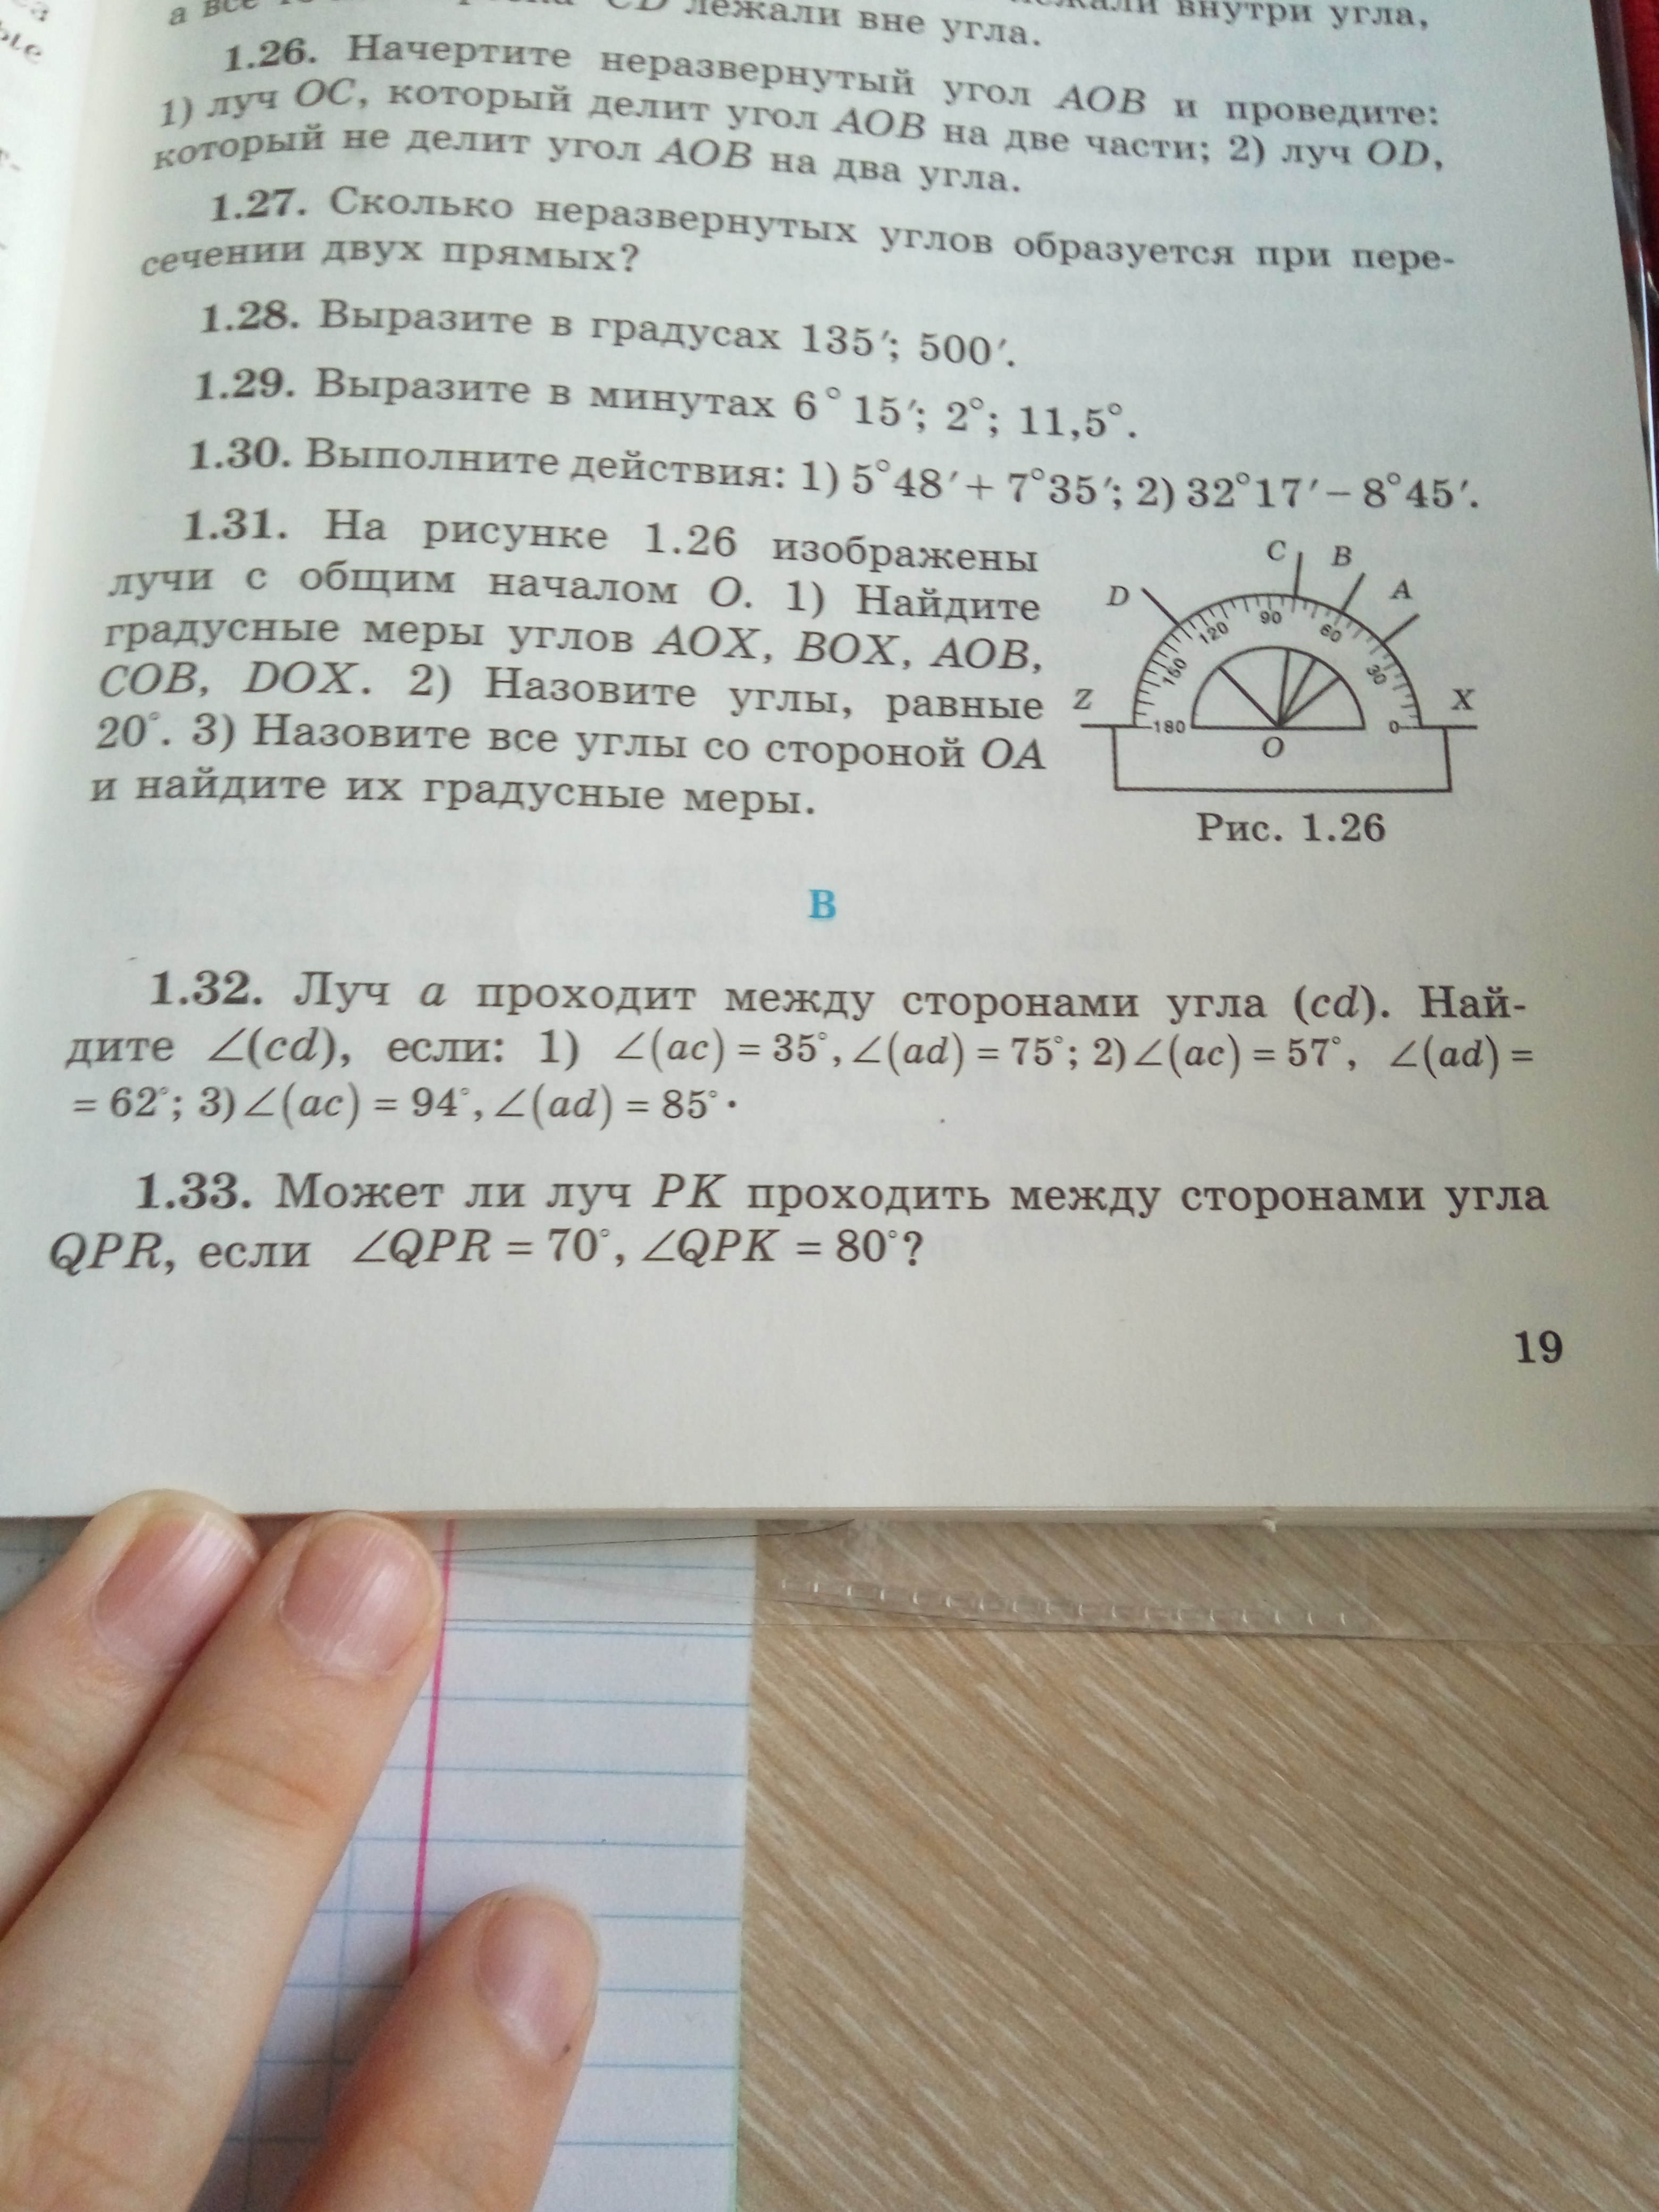 а все CD лежали вне угла.
внутри угла,
1.26. Начертите неразвернутый угол AOB и проведите:
1) луч OC, который делит угол AOB на две части; 2) луч OD,
который не делит угол AOB на два угла.
1.27. Сколько неразвернутых углов образуется при пере-
сечении двух прямых?
1.28. Выразите в градусах 135′; 500′.
1.29. Выразите в минутах 6° 15′; 2°; 11,5°.
1.30. Выполните действия: 1) 5°48′ + 7°35′; 2) 32°17′ – 8°45′.
1.31. На рисунке 1.26 изображены
лучи с общим началом O. 1) Найдите
градусные меры углов AOX, BOX, AOB,
COB, DOX. 2) Назовите углы, равные
20°. 3) Назовите все углы со стороной OA
и найдите их градусные меры.
C B
D A
120 90 60
150 30
Z X
180 0
O
Рис. 1.26
В
1.32. Луч a проходит между сторонами угла (cd). Най-
дите ∠(cd), если: 1) ∠(ac) = 35°, ∠(ad) = 75°; 2) ∠(ac) = 57°, ∠(ad) =
= 62°; 3) ∠(ac) = 94°, ∠(ad) = 85°.
1.33. Может ли луч PK проходить между сторонами угла
QPR, если ∠QPR = 70°, ∠QPK = 80°?
19